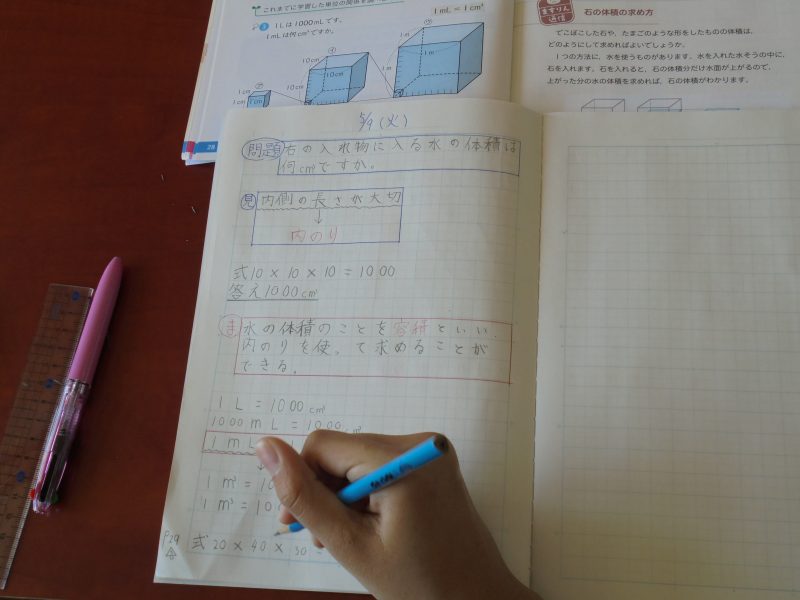 これまでに学習した単位の関係を
1Lは1000mLです。
1mLは何cm³ですか。
1mL = 1cm³
1cm
1cm
1cm
10cm
10cm
10cm
1m
1m
1m
28
石の体積の求め方
でこぼこした石や、たまごのような形をしたものの体積は、
どのようにして求めればよいでしょうか。
1つの方法に、水を使うものがあります。水を入れた水そうの中に、
石を入れます。石を入れると、石の体積分だけ水面が上がるので、
上がった分の水の体積を求めれば、石の体積がわかります。
5/9(火)
問題 右の入れ物に入る水の体積は
何cm³ですか。
見 内側の長さが大切
↓
内のり
式10×10×10=1000
答え1000cm³
ま 水の体積のことを容積といい、
内のりを使って求めることが
できる。
1L=1000cm³
1000mL=1000cm³
1mL
↓
1m³=10
1m³=10
P29
式20×40×30=